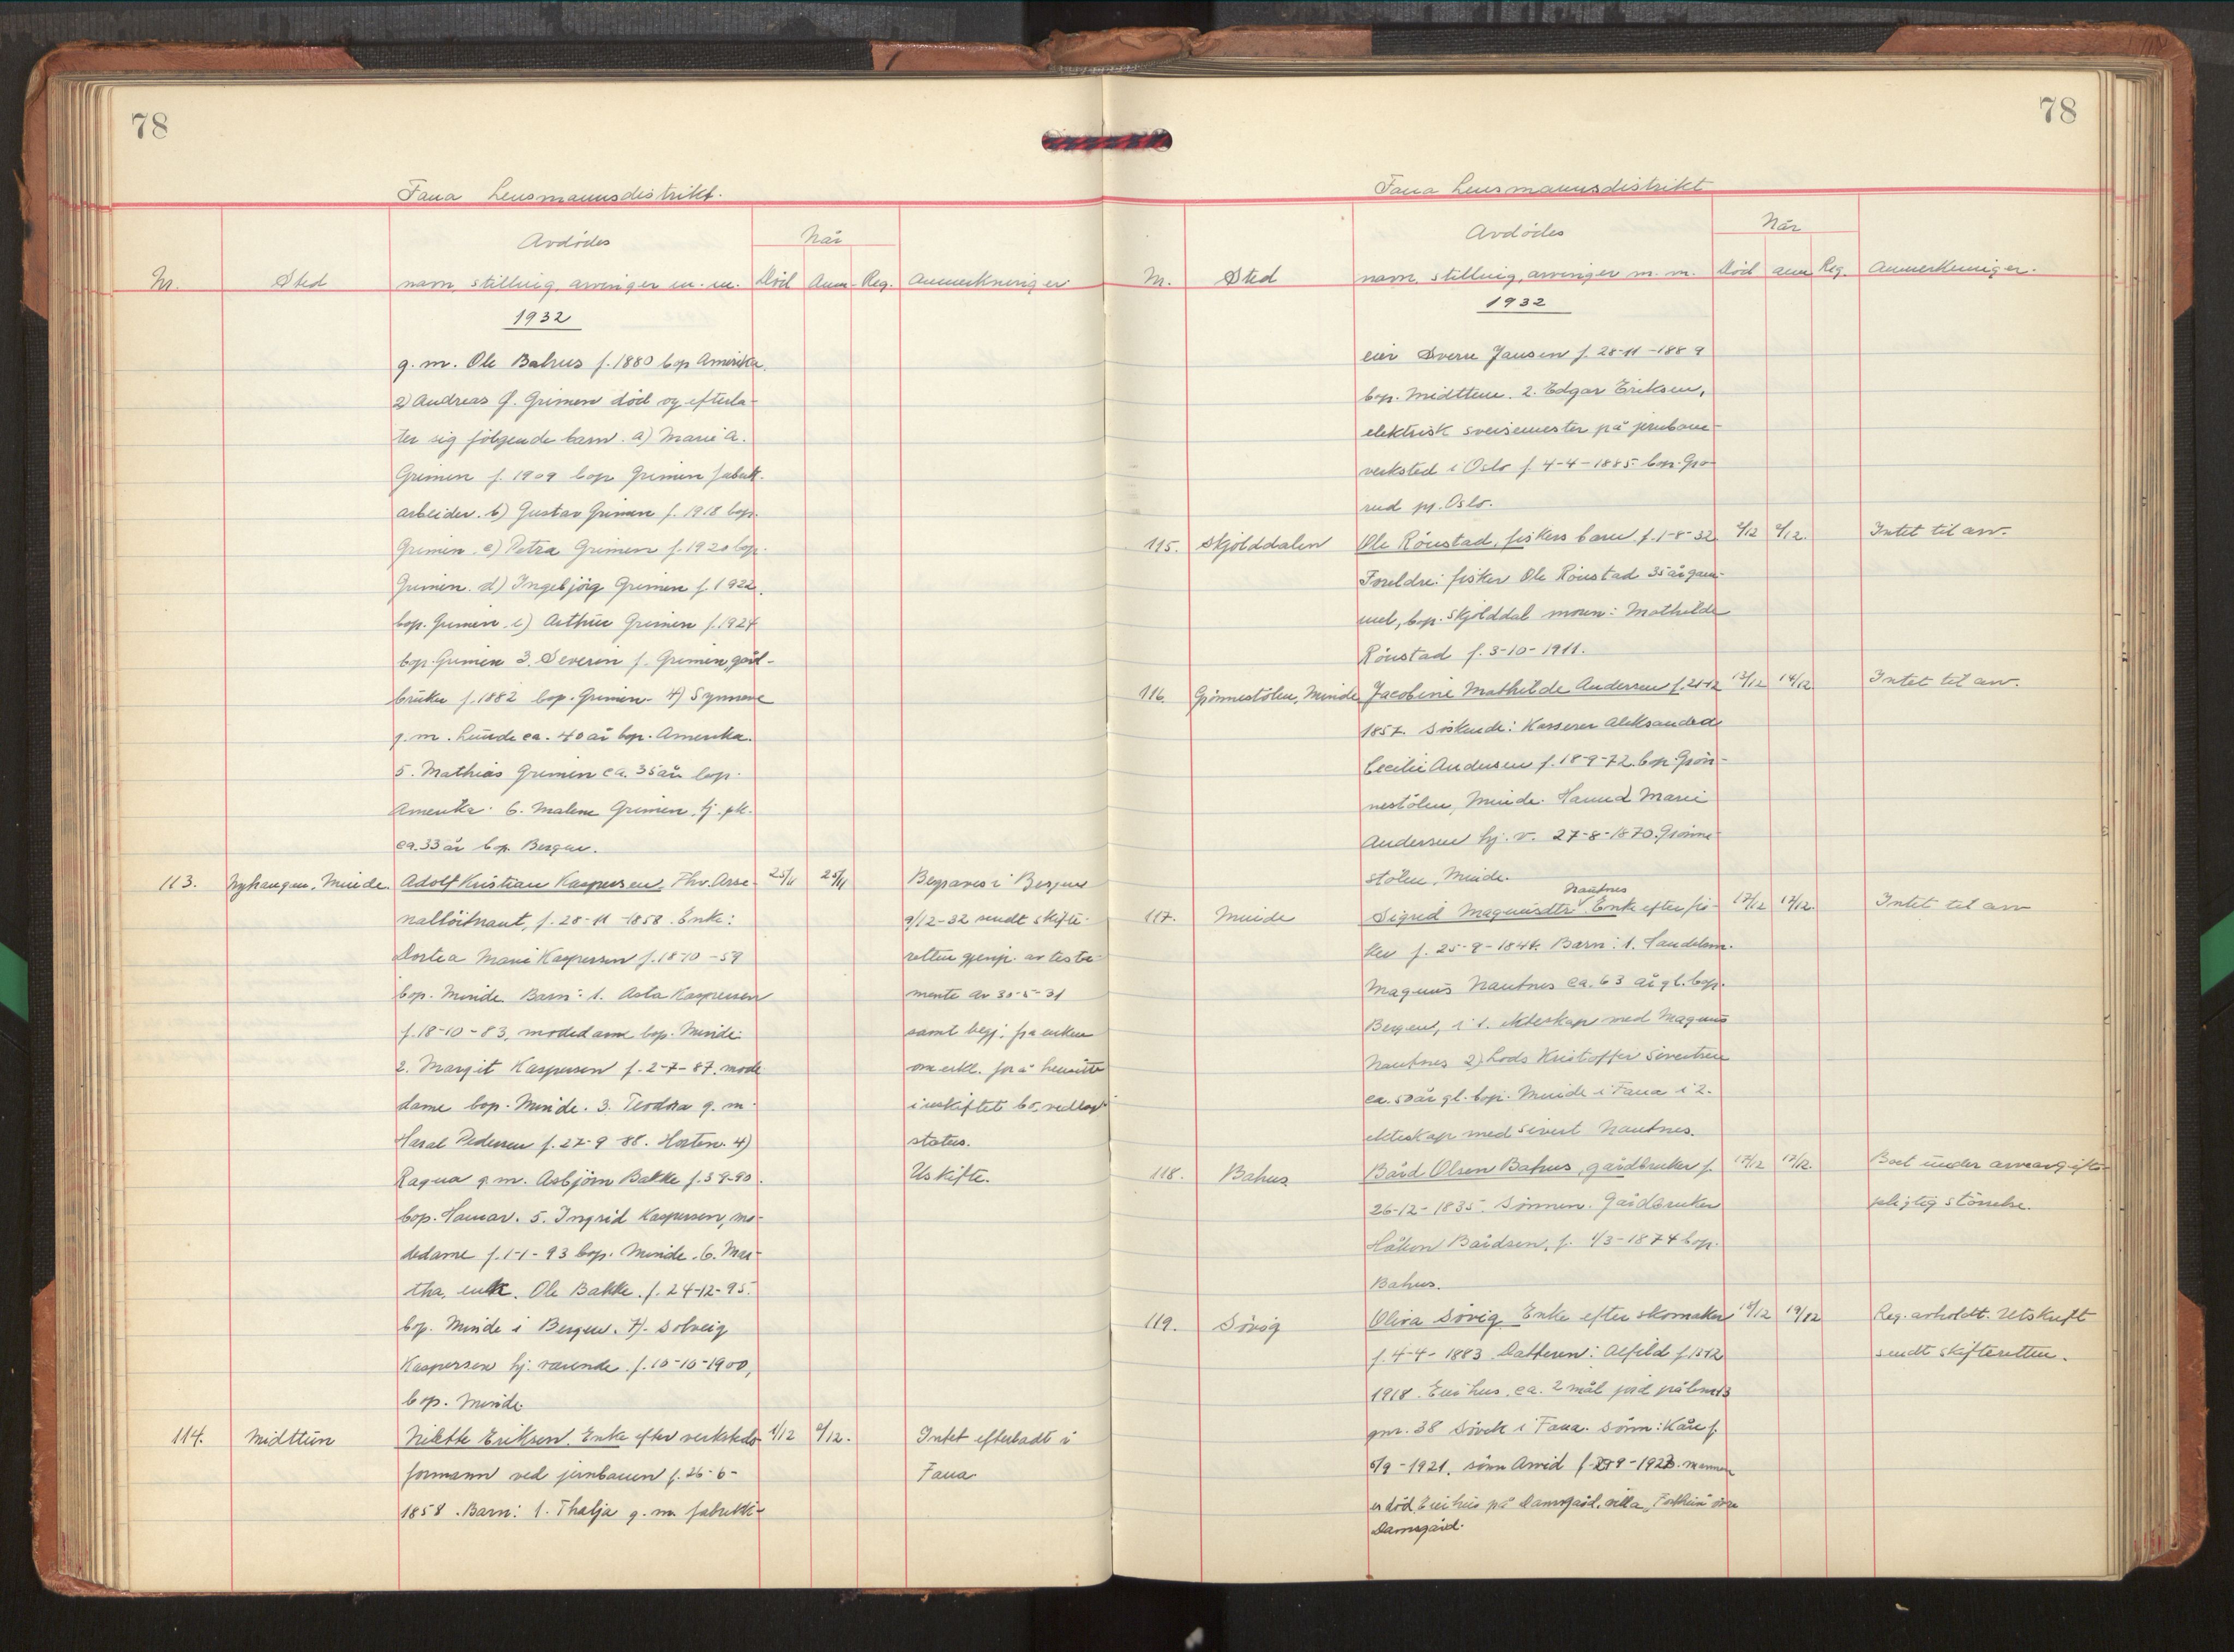 78
Fana Lensmannsdistrikt.
Nr. Sted Avdödes navn, stilling, arvinger m. m. Når Död Anm. Reg. Anmerkninger
1932
g. m. Ole Bahus f. 1880 bop Amerika.
2) Andreas J. Grimen död og efterla-
ter sig følgende barn. a) Marie A.
Grimen f. 1909 bop Grimen fabrik.
arbeider. b) Gustav Grimen f. 1918 bop.
Grimen. c) Petra Grimen f. 1920 bop.
Grimen. d) Ingebjörg Grimen f. 1922.
bop. Grimen. e) Arthur Grimen f. 1924
bop. Grimen 3. Severin J. Grimen, gård-
bruker f. 1882 bop. Grimen. 4) Synneve
g. m. Lunde ca. 40 år bop. Amerika.
5. Mathias Grimen ca. 35 år bop.
Amerika. 6. Malene Grimen, tj. pk.
ca. 33 år bop. Bergen.
113. Nyhaugen, Minde. Adolf Kristian Kaspersen, Fhv. Arse- 25/11 25/11 Begraves i Bergen
nallöitnant, f. 28-11-1858. Enke: 9/12-32 sendt skifte-
Dortea Marie Kaspersen f. 18 10-59 retten gjenp. av testa-
bop. Minde. Barn: 1. Asta Kaspersen mente av 30-5-31
f. 18-10-83, modedame bop. Minde. samt begj. fra enken
2. Margit Kaspersen f. 2-7-87. mode om erkl. for å hensitte
dame bop. Minde. 3. Teodora g. m. i uskiftet bo, vedlagt
Haral Pedersen f. 27-9 88. Horten. 4) status.
Ragna g. m. Asbjörn Bakke f. 3 9-90. Uskifte.
bop. Hamar. 5. Ingrid Kaspersen, mo-
dedame f. 1-1-93 bop. Minde. 6. Mar-
tha, enk. Ole Bakke. f. 24-12-95.
bop. Minde i Bergen. 7). Solveig
Kaspersen hj. værende. f. 10-10-1900,
bop. Minde.
114. Midttun Nilette Eriksen. Enke efter verksteds- 1/12 2/12. Intet efterladt i
formann ved jernbanen f. 26-6- Fana.
1858. Barn: 1. Thalja g. m. fabrikk-
78
Fana Lensmannsdistrikt
Nr. Sted Avdödes navn, stilling, arvinger m. m. Når Död anm Reg. Anmerkninger.
1932
eier Sverre Jansen f. 28-11-1889
bop. Midttun. 2. Edgar Eriksen,
elektrisk sveisemester på jernbane-
verksted i Oslo f. 4-4-1885. bop. Gro-
rud pr. Oslo.
115. Skjolddalen Ole Rönstad, fiskers barn f. 1-8-32 2/12 2/12. Intet til arv.
Foreldre: fisker Ole Rönstad 35 år gam-
mel, bop. Skjolddal moren: Mathilde
Rönstad f. 3-10-1911.
116. Grönnestölen, Minde Jacobine Mathilde Andersen f. 21-12 13/12 14/12 Intet til arv.
1857. Söskende: Kasserer Aleksander
Cecilie Andersen f. 18-9-72. bop. Grön-
nestölen, Minde. Hanna Marie
Andersen hj. v. 27-8-1870. Grönne-
stölen, Minde.
117. Minde Sigrid Magnusdtr. Nautnes Enke efter fis- 17/12 17/12. Intet til arv
ker f. 25-9-1844. Barn: 1. Handelsm.
Magnus Nautnes ca. 63 år gl. bop.
Bergen, i 1. ekteskap med Magnus
Nautnes 2) Lods Kristoffer Sivertsen
ca. 50 år gl. bop. Minde i Fana i 2.
ekteskap med Sivert Nautnes.
118. Bahus Bård Olsen Bahus, gårdbruker f. 17/12 17/12. Boet under arveavgifts-
26-12-1835. Sönnen. Gårdbruker pligtig störrelse.
Håkon Bårdsen, f. 1/3-1874 bop.
Bahus.
119. Sövig Oliva Sövig Enke efter skomaker 18/12 19/12 Reg. avholdt. Utskrift
f. 4-4-1883. Datteren: Alfild f. 13-12 sendt skifteretten.
1918. Eier hus, ca. 2 mål jord på bnr 13
gnr. 38 Sövik i Fana. Sönn: Kåre f.
5/9-1921. sönn Arvid f. 9-1923. mannen
er död. Eier hus på Damsgård, villa "Solheim" övre
Damsgård.